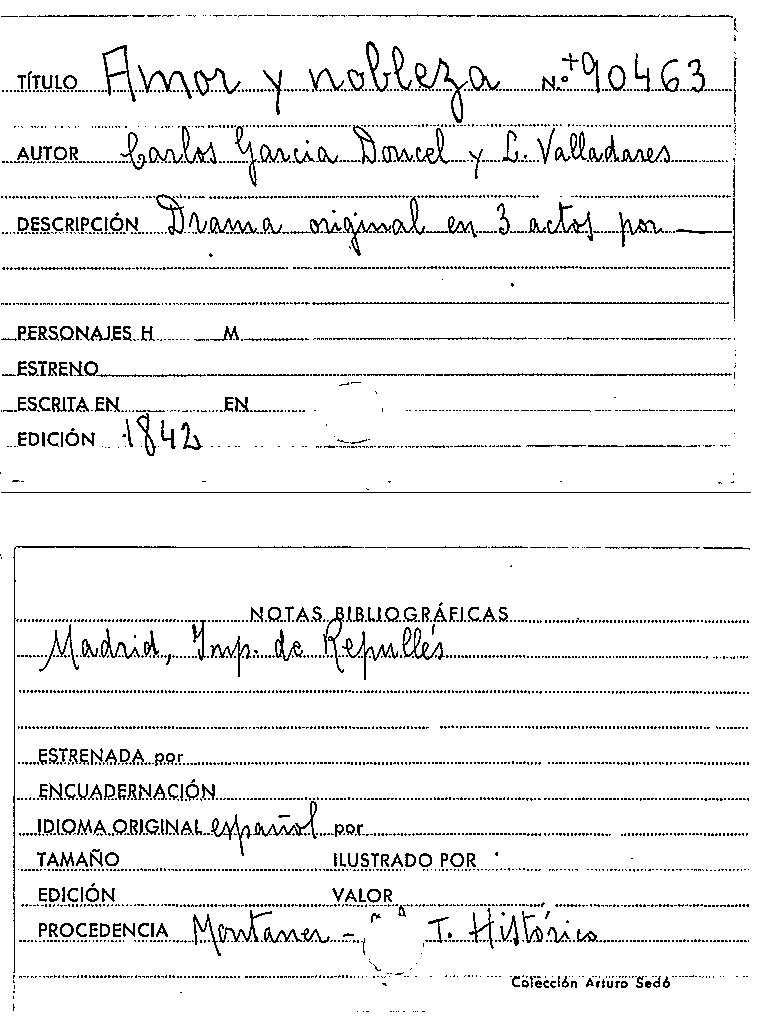 TÍTULO Amor y nobleza N.º +90463
AUTOR Carlos García Doncel y L. Valladares
DESCRIPCIÓN Drama original en 3 actos por —
PERSONAJES H M
ESTRENO
ESCRITA EN EN
EDICIÓN 1842
NOTAS BIBLIOGRÁFICAS
Madrid, Imp. de Repullés
ESTRENADA por
ENCUADERNACIÓN
IDIOMA ORIGINAL español por
TAMAÑO ILUSTRADO POR
EDICIÓN VALOR
PROCEDENCIA Montaner - T. Histórico
Colección Arturo Sedó